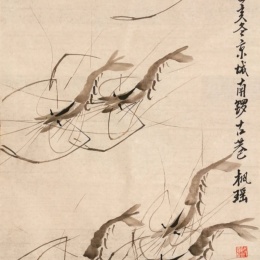 亥冬京城南锣古巷 枫瑶